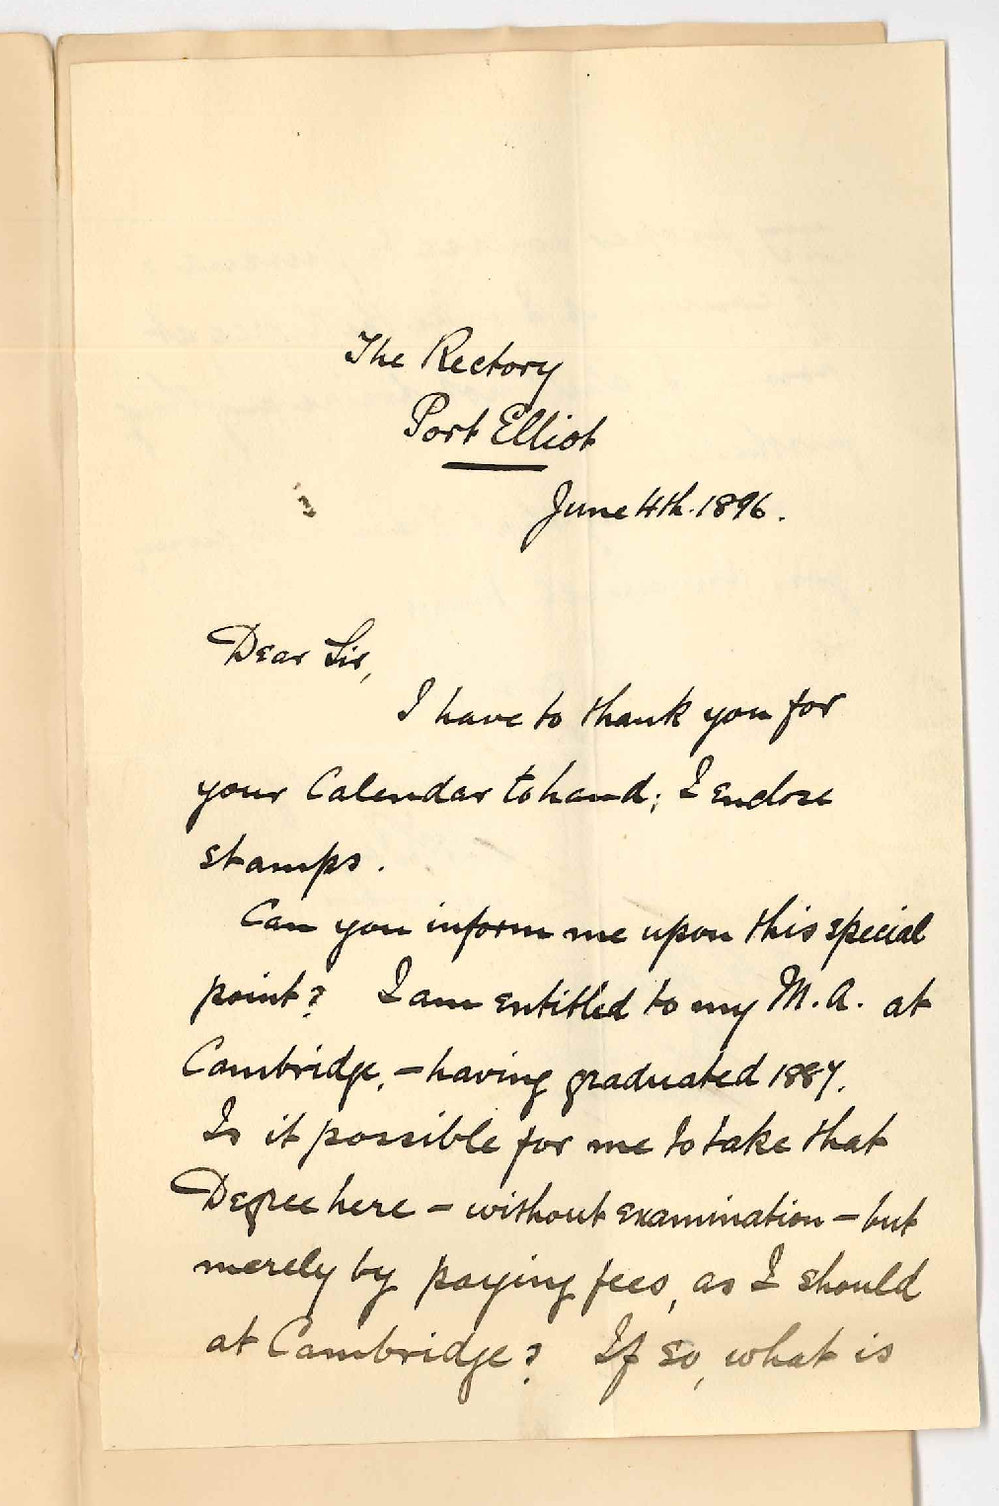 The Rectory
Port Elliot
June 4th. 1896.
Dear Sir,
I have to thank you for
your Calendar to hand; I enclose
stamps.
Can you inform me upon this special
point? I am entitled to my M.A. at
Cambridge, - having graduated 1887.
Is it possible for me to take that
Degree here - without examination - but
merely by paying fees, as I should
at Cambridge? If so, what is